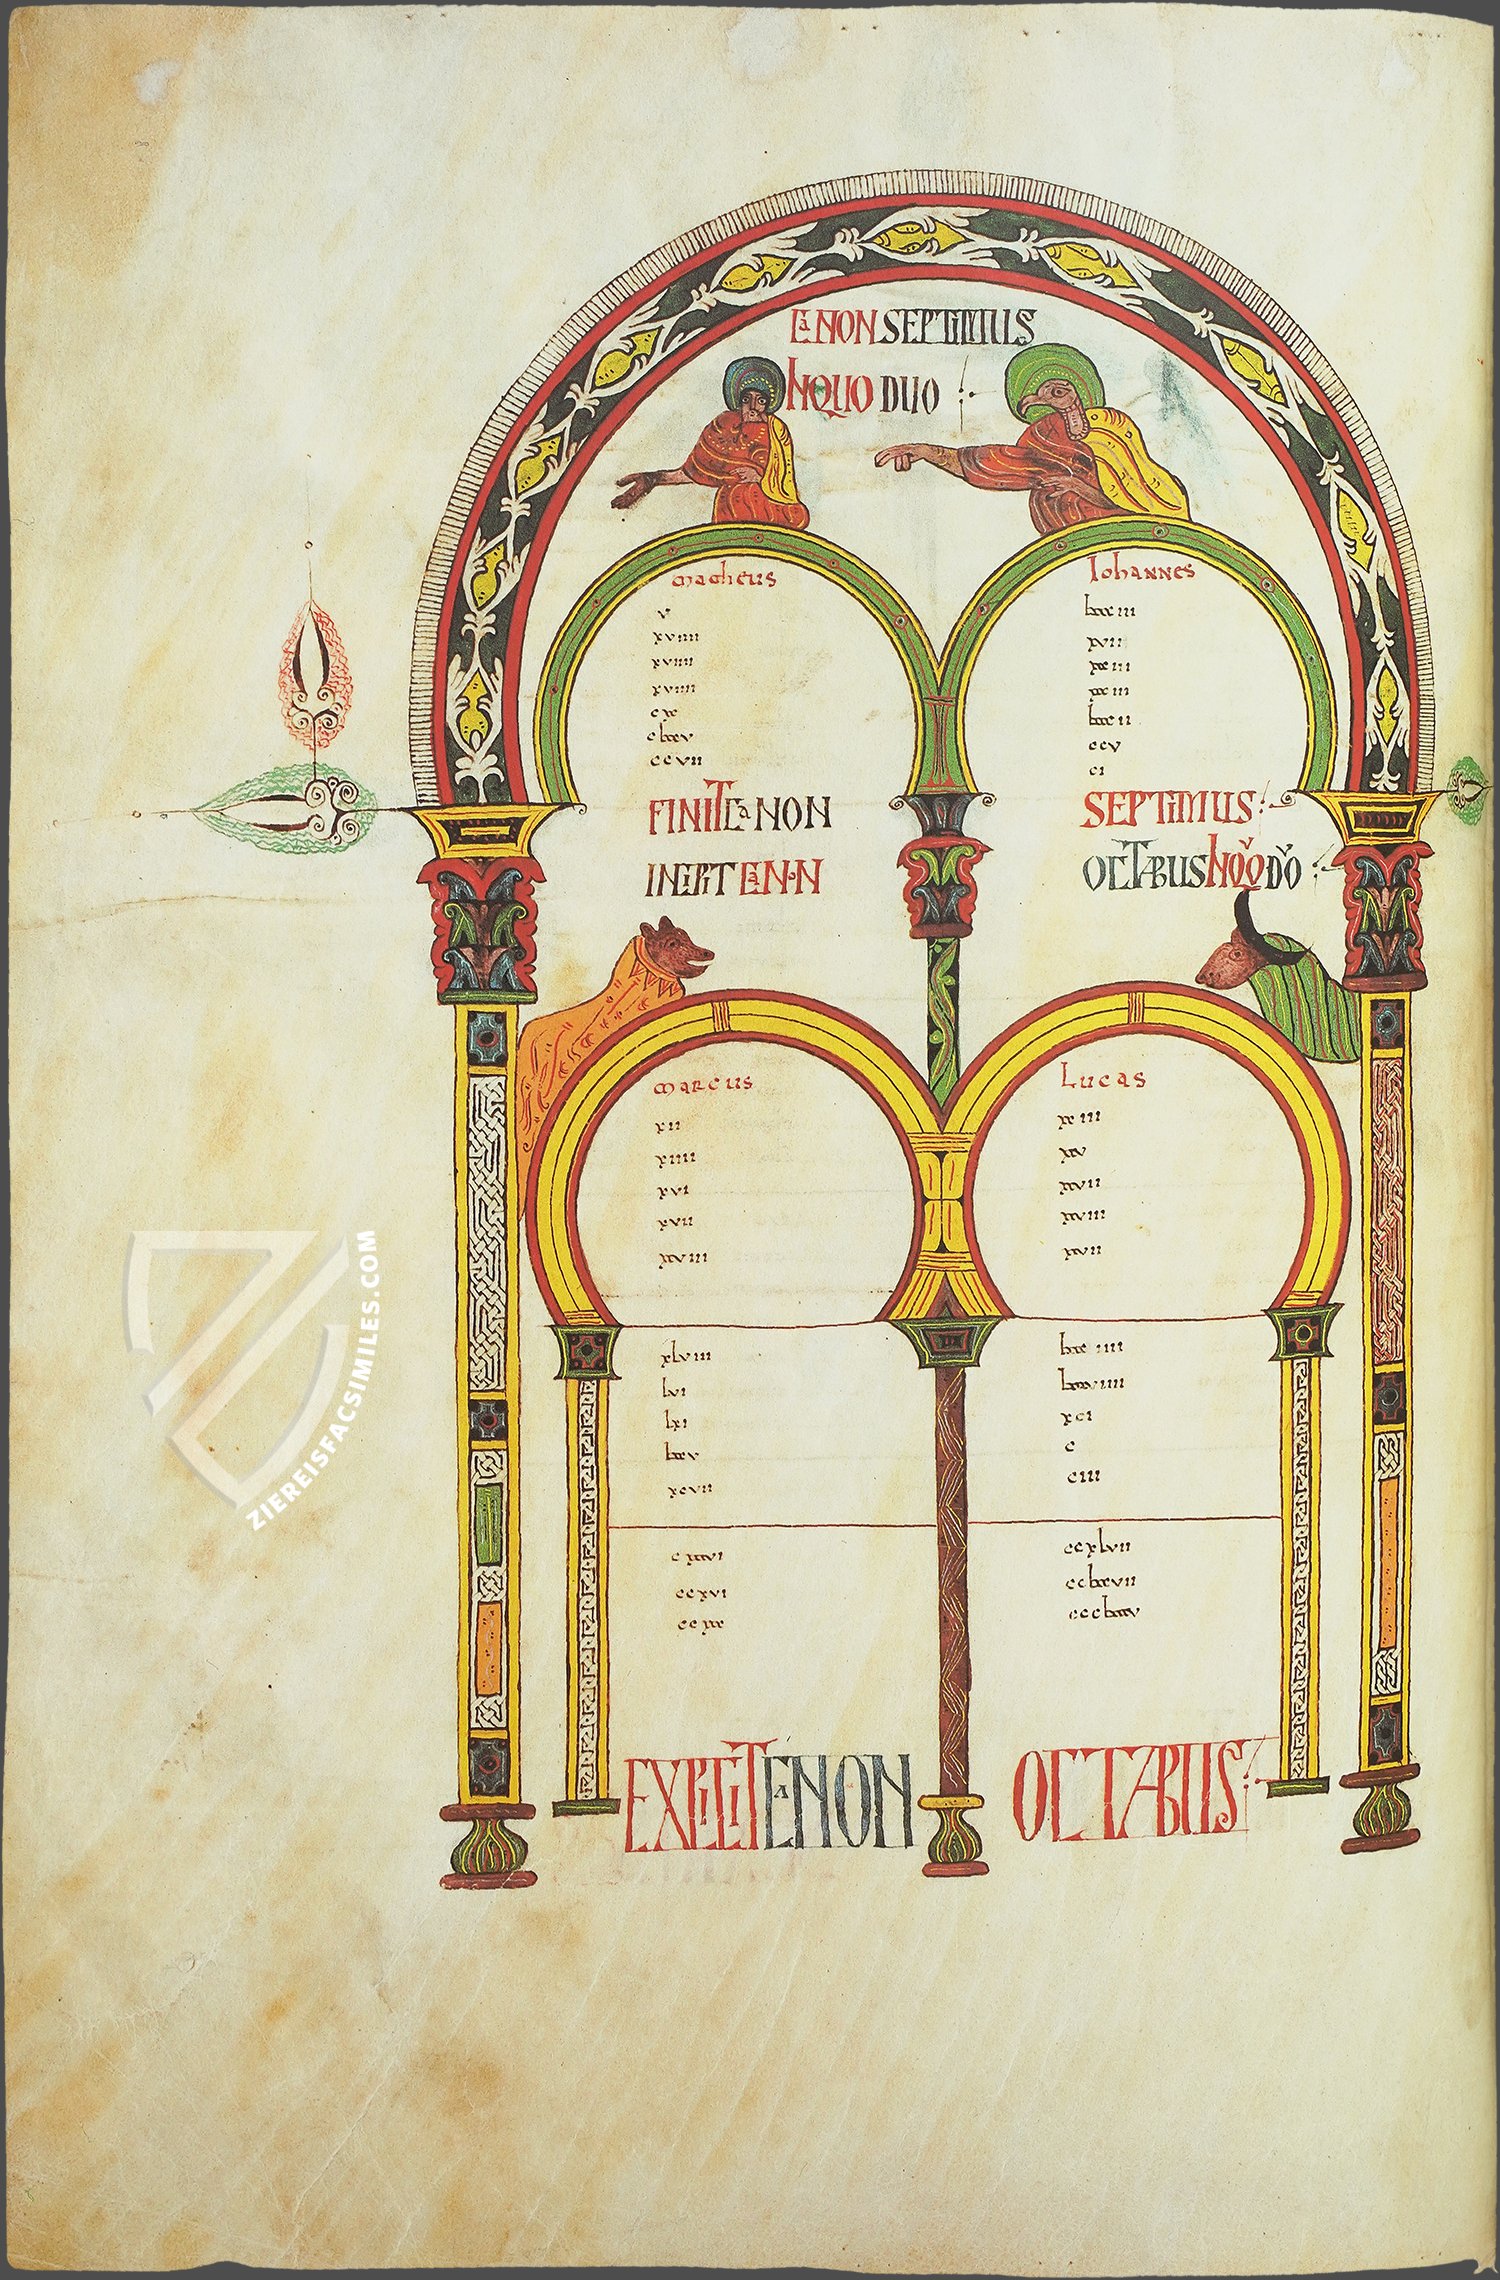 CANON SEPTIMUS
IN QUO DUO
Matheus
v
xviiii
xviiii
xviiii
cxx
clxxxv
ccvii
Iohannes
lxxxiii
xvii
xxxiii
xxxiii
lxxxii
ccv
ci
FINIT CANON
SEPTIMUS
INCIPIT CANON
OCTABUS IN QVO DVO
Marcus
xii
xiiii
xvi
xvii
xxviii
Lucas
xxiii
xxv
xxvii
xxviii
xxvii
xlviii
lvi
lxi
lxxv
xcvii
xci
c
ciii
cxxxvi
ccxvi
ccxxx
ccxlvii
cclxxvii
EXPLICIT CANON
OCTABUS
ZIEREISFACSIMILES.COM